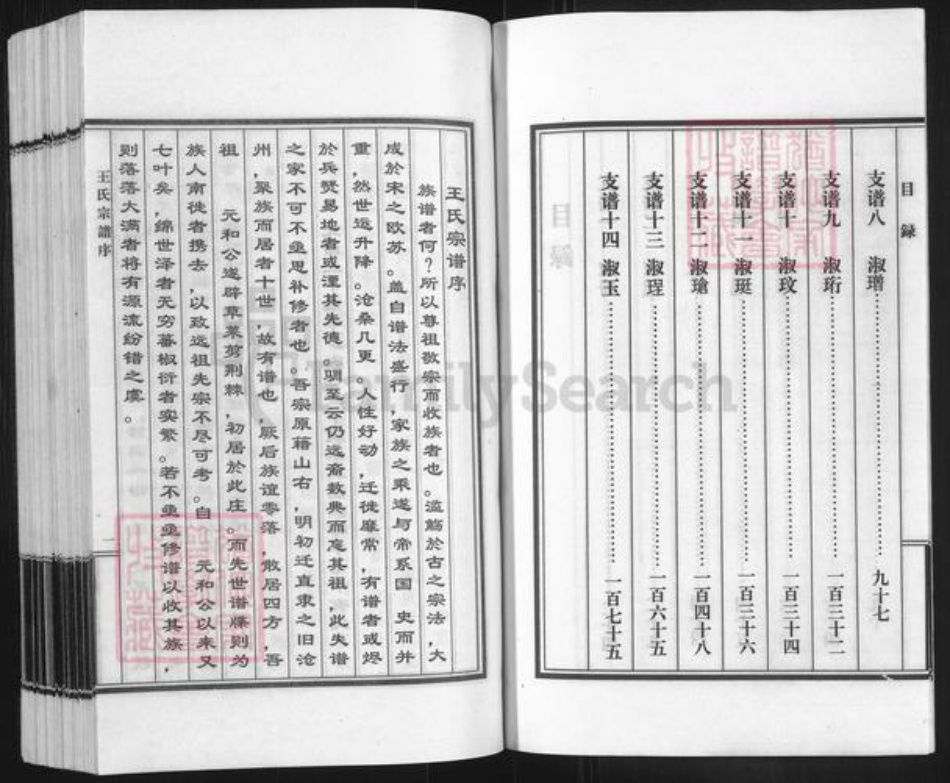 目録
支谱八 淑璔 九十七
支谱九 淑珩 一百三十二
支谱十 淑玟 一百三十四
支谱十一 淑珽 一百三十六
支谱十二 淑瑲 一百四十八
支谱十三 淑珵 一百六十五
支谱十四 淑玉 一百七十五
王氏宗谱序
族谱者何？所以尊祖敬宗而收族者也。滥觞於古之宗法，大
成於宋之欧苏。盖自谱法盛行，家族之乘遂与帝系国 史而并
重，然世运升降。沧桑几更。人性好动，迁徙靡常，有谱者或烬
於兵燹易地者或湮其先德。驯至云仍远裔数典而忘其祖，此失谱
之家不可不亟思补修者也。吾宗原籍山右，明初迁直隶之旧沧
州，聚族而居者十世，故有谱也，厥后族谊零落，散居四方，吾
祖 元和公遂辟草莱剪荆棘，初居於此庄。而先世谱牒则为
族人南徙者携去，以致远祖先宗不尽可考。自 元和公以来又
七叶矣，绵世泽者无穷蕃椒衍者实繁。若不亟亟修谱以收其族，
则落落大满者将有源流纷错之虞。
王氏宗譜序
二
FamilySearch